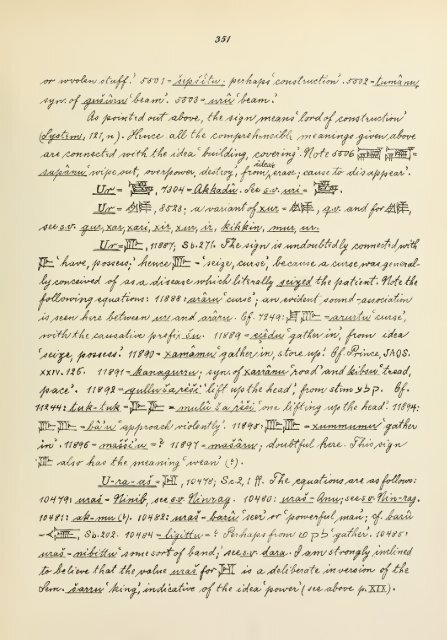 351
or woolen stuff.' 5501 = šipšitu; perhaps 'construction'. 5502 = tumânu,
syn. of gušûru 'beam'. 5503 = urû 'beam.'
As pointed out above, the sign means 'lord of construction'
(System, 121, n). Hence all the comprehensible meanings given above
are connected with the idea 'building, covering'. Note 5506 =
sapânu 'wipe out, overpower, destroy, from idea, erase; cause to disappear'.
Ur = , 7304 = Akkadû. See s.v. uri = .
Ur = , 8523; a variant of xur = , q.v. and for ,
see s.v. gur, xar, xari, xir, xur, ir, kikkin, mur, ur.
Ur = , 11887; Sb. 271. The sign is undoubtedly connected with
'have, possess;' hence = 'seize, curse', because a curse was general-
ly conceived of as a disease which literally seized the patient. Note the
following equations: 11888: arâru 'curse', an evident sound-association
is seen here between ur and arâru. Cf. 7249: = arurtu 'curse',
with the causative prefix šu. 11889 = eçêdu 'gather in', from idea
'seize, possess.' 11890 = xamâmu 'gather in, store up'. Cf. Prince, JAOS.
XXIV. 126. 11891 = kanagurru; syn. of xarrânu 'road' and kibsu 'tread,
pace'. 11892 = qullû ša rîši 'lift up the head', from stem . Cf.
11244: luk-luk = = mulû ša rîši 'one lifting up the head'. 11894:
= bâ'u 'approach violently'. 11895: = xummumu 'gather
in'. 11896 = mašši'u = ? 11897 = mašâru; doubtful here. This sign
also has the meaning 'wean' (?).
U-ra-aš = , 10478; Sc. 2, 1 ff. The equations are as follows:
10479: uraš = Ninib, see s.v. Ninrag. 10480: uraš = Anu; see s.v. Nin-rag.
10481: ak-mu (?). 10482: uraš = barû 'seer' or 'powerful man'; cf. barû
= , Sb. 202. 10484 = ligittu = ? Perhaps from 'gather'. 10485:
uraš = nibittu 'some sort of band', see s.v. dara. I am strongly inclined
to believe that the value uraš for is a deliberate inversion of the
Sem. šarru 'king', indicative of the idea 'power' (see above p. XIX).